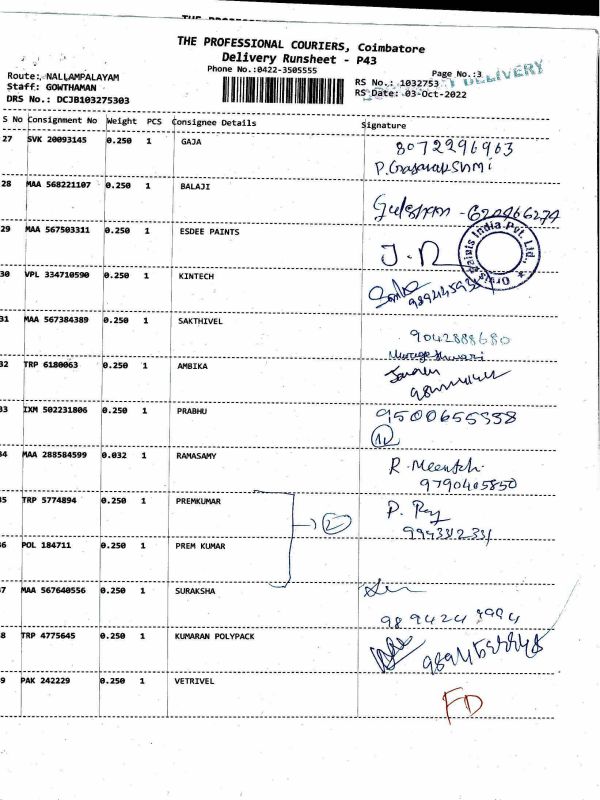 THE PROFESSIONAL COURIERS, Coimbatore
Delivery Runsheet - P43
Phone No.:0422-3505555
Page No.:3
DELIVERY
Route: NALLAMPALAYAM
Staff: GOWTHAMAN
DRS No.: DCJB103275303
RS No.: 1032753
RS Date: 03-Oct-2022
S No Consignment No Weight PCS Consignee Details Signature
27 SVK 20093145 0.250 1 GAJA 8072296963
28 MAA 568221107 0.250 1 BALAJI
29 MAA 567503311 0.250 1 ESDEE PAINTS J.R
India Pvt. Ltd.,
30 VPL 334710590 0.250 1 KINTECH
31 MAA 567384389 0.250 1 SAKTHIVEL 9042888680
32 TRP 6180063 0.250 1 AMBIKA
33 IXM 502231806 0.250 1 PRABHU 9500655558
34 MAA 288584599 0.032 1 RAMASAMY R. Meenakshi
9790405850
35 TRP 5774894 0.250 1 PREMKUMAR P. Roy
2
36 POL 184711 0.250 1 PREM KUMAR
37 MAA 567640556 0.250 1 SURAKSHA
38 TRP 4775645 0.250 1 KUMARAN POLYPACK
39 PAK 242229 0.250 1 VETRIVEL FD